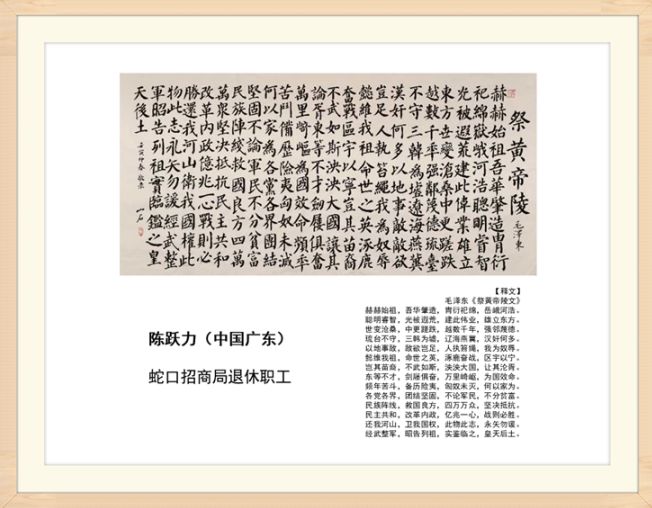 祭黄帝陵 毛澤東
赫赫始祖吾華肇造胄衍
祀綿嶽峨河浩聰明睿智
光被遐荒建此偉業雄立
東方世變滄桑中更蹉跌
越數千年强鄰蔑德琉臺
不守三韓為墟遼海燕冀
漢奸何多以地事敵敵欲
豈足人執笞繩我為奴辱
懿維我祖命世之英涿鹿
奮戰區宇以寧豈其苗裔
不武如斯泱泱大國讓其
淪胥東等不才劍屨俱奮
萬里崎嶇為國效命頻年
苦鬥備歷險夷匈奴未滅
何以家為各黨各界團結
堅固不論軍民不分貧富
民族陣綫救國良方四萬
萬衆堅決抵抗民主共和
改革内政億兆一心戰則必
勝還我河山衛我國權此
物此志永矢勿諼經武整
軍昭告列祖實臨鑑之皇
天後土 壬寅仲春敬录 一石
陈跃力（中国广东）
蛇口招商局退休职工
【释文】
毛泽东《祭黄帝陵文》
赫赫始祖，吾华肇造，胄衍祀绵，岳峨河浩。
聪明睿智，光被遐荒，建此伟业，雄立东方。
世变沧桑，中更蹉跌，越数千年，强邻蔑德。
琉台不守，三韩为墟，辽海燕冀，汉奸何多。
以地事敌，敌欲岂足，人执笞绳，我为奴辱。
懿维我祖，命世之英，涿鹿奋战，区宇以宁。
岂其苗裔，不武如斯，泱泱大国，让其沦胥。
东等不才，剑屦俱奋，万里崎岖，为国效命。
频年苦斗，备历险夷，匈奴未灭，何以家为。
各党各界，团结坚固，不论军民，不分贫富。
民族阵线，救国良方，四万万众，坚决抵抗。
民主共和，改革内政，亿兆一心，战则必胜。
还我河山，卫我国权，此物此志，永矢勿谖。
经武整军，昭告列祖，实鉴临之，皇天后土。